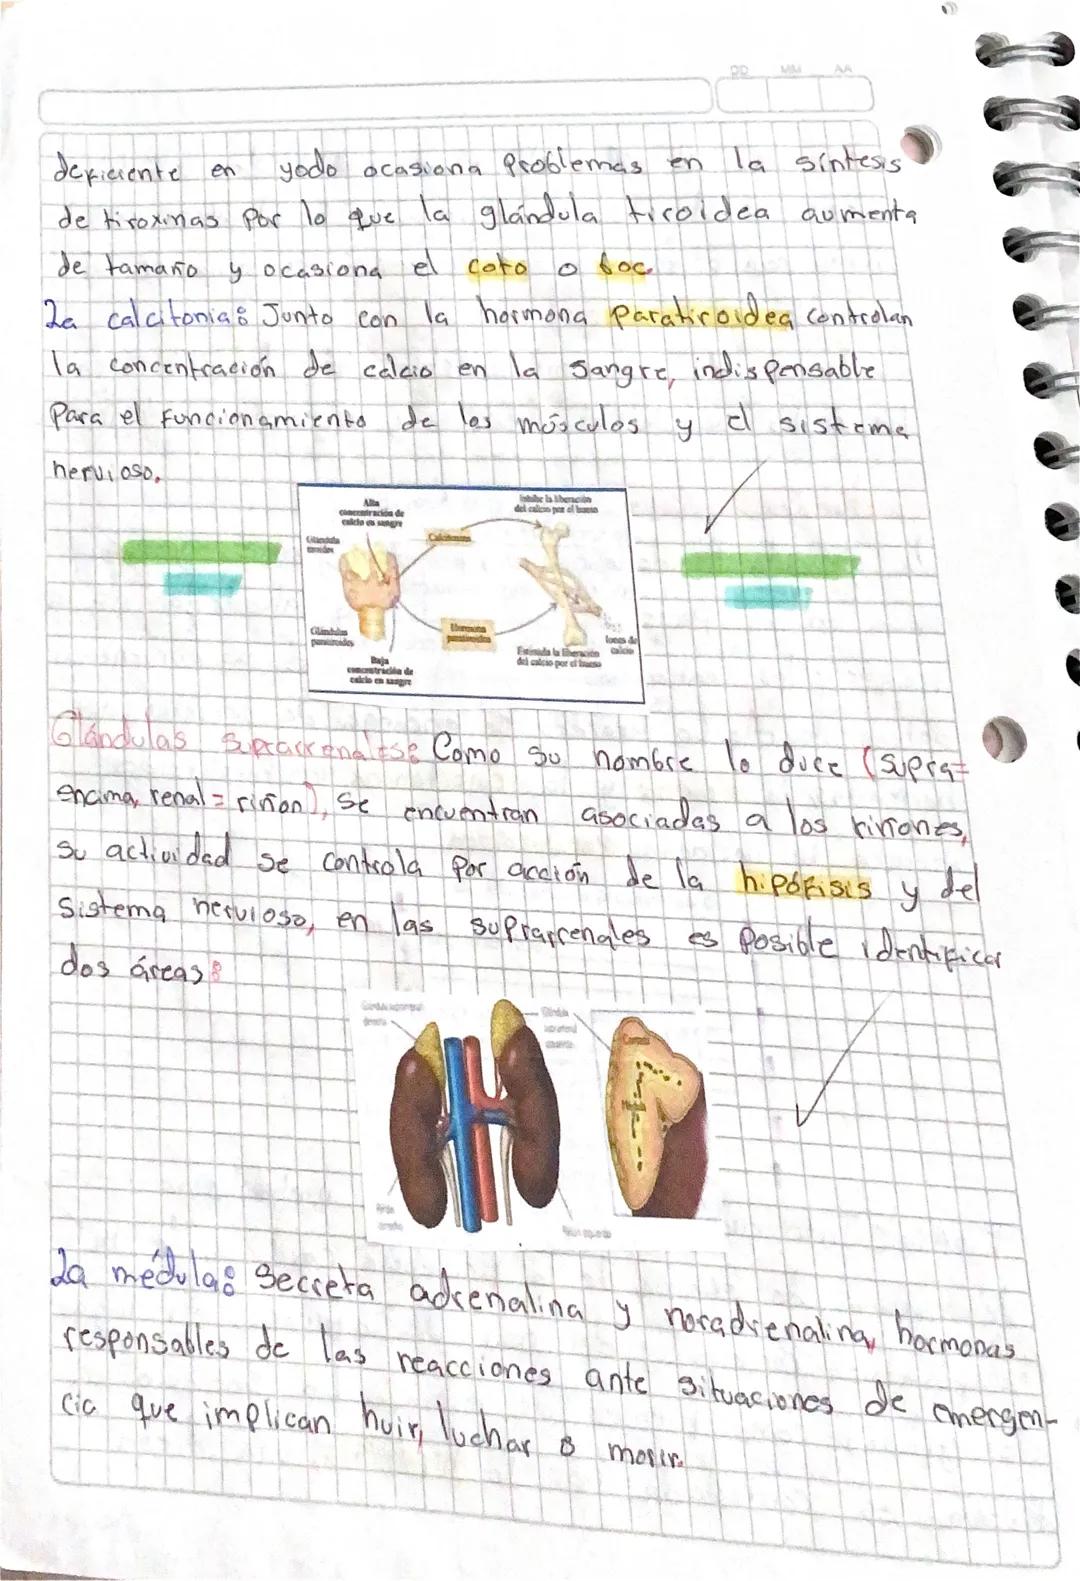 DD MM AA
deficiente en yodo ocasiona problemas en la síntesis
de tiroxinas por lo que la glándula tiroidea aumenta
de tamaño y ocasiona el coto o boc.
La calcitonia: Junto con la hormona paratiroidea controlan
la concentración de calcio en la sangre, indispensable
para el funcionamiento de los músculos y el sistema
nervioso.
Alta
concentración de
calcio en sangre
Inhibe la liberación
del calcio por el hueso
Glándula
tiroides
Calcitonina
Glándulas
paratiroides
Hormona
paratiroidea
Iones de
calcio
Estimula la liberación
del calcio por el hueso
Baja
concentración de
calcio en sangre
Glándulas suprarrenales: Como su nombre lo duce (supra=
encima, renal = riñon), se encuentran asociadas a los riñones,
su actividad se controla por acción de la hipófisis y del
sistema nervioso, en las suprarrenales es posible identificar
dos áreas:
Glándula suprarrenal
derecha
Glándula
suprarrenal
izquierda
Corteza
Riñón
derecho
Riñón izquierdo
La médula: Secreta adrenalina y noradrenalina, hormonas
responsables de las reacciones ante situaciones de emergen-
cia que implican huir, luchar o morir.